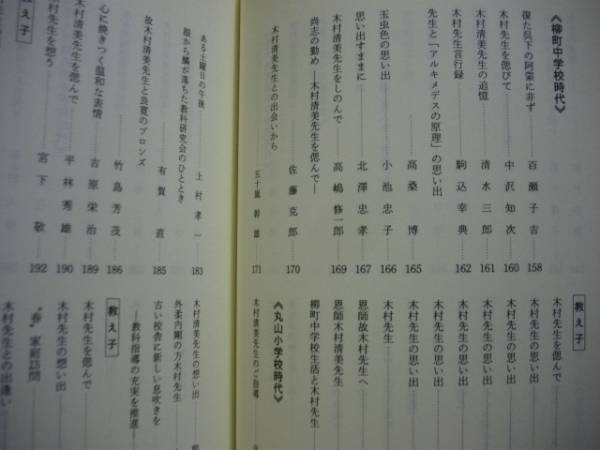 《柳町中学校時代》
復た呉下の阿蒙に非ず 百瀬子吉 158
木村先生を偲びて 中沢知次 160
木村清美先生の追憶 清水三郎 161
木村先生言行録 駒込幸典 162
先生と「アルキメデスの原理」の思い出 高桑博 165
玉虫色の思い出 小池忠子 166
思い出すままに 北澤忠孝 167
木村清美先生をしのんで 高嶋修一郎 169
尚志の勤め―木村清美先生を偲んで― 佐藤克郎 170
木村清美先生との出会いから 五十嵐幹雄 171
ある土曜日の午後 上村孝一 183
眼から鱗が落ちた教科研究会のひととき
故木村清美先生と良寛のブロンズ 有賀直 185
竹島芳茂 186
教え子
心に焼きつく温和な表情 吉原栄治 189
木村清美先生を偲んで 平林秀雄 190
村先生を想う 宮下敬 192
教え子
木村先生を偲んで
木村先生の思い出
木村先生の思い出
木村先生の思い出
木村先生の思い出
木村先生の思い出
木村先生
恩師故木村先生へ
恩師木村清美先生
柳町中学校生活と木村先生
《丸山小学校時代》
木村清美先生のご指導
木村清美先生の想い出
外柔内剛の万木村先生
古い校舎に新しい息吹きを
―教科指導の充実を推進―
教え子
木村先生を偲んで
木村先生の想い出
"春"家庭訪問
木村先生との出逢い